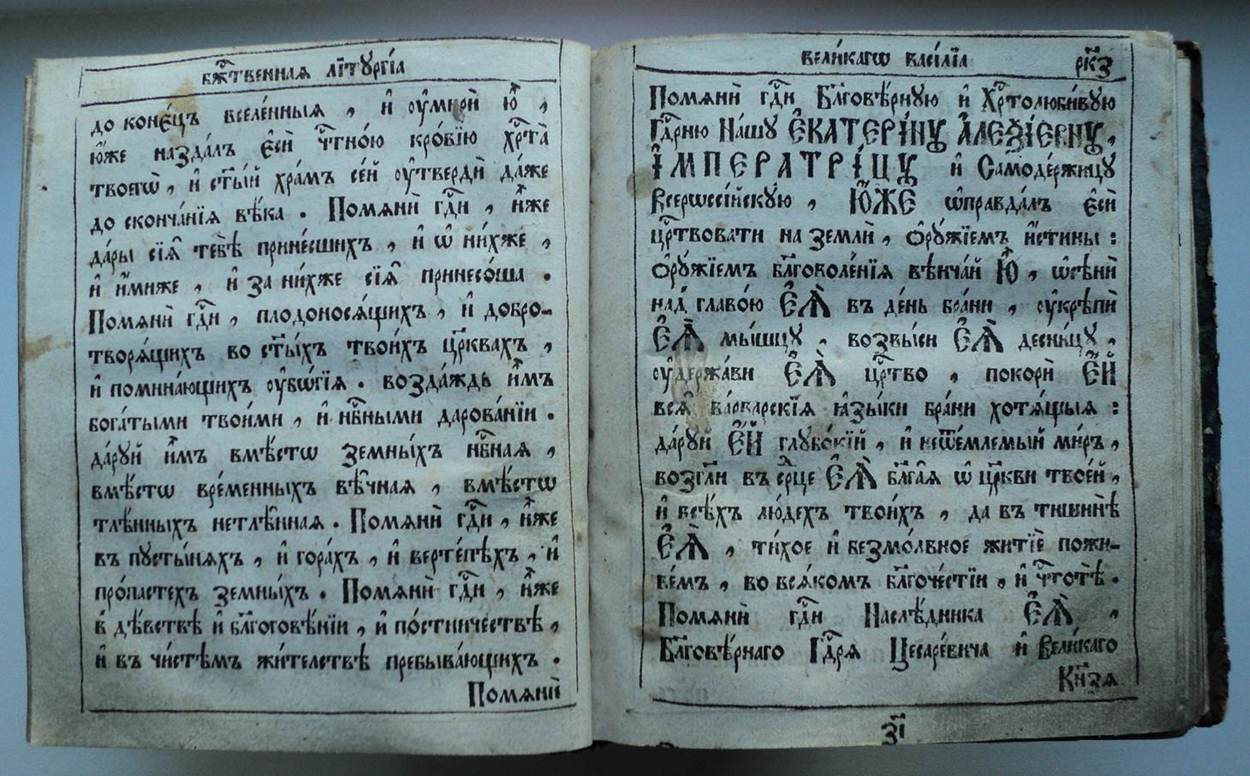 бж҃твеннаѧ лїтꙋргі́а
до коне́цъ вселе́нныѧ , и҆ ᲂу҆мирѝ ю҆̀ ,
ю҆́же назда́лъ є҆сѝ чⷭ҇тно́ю кро́вїю хрⷭ҇та̀
твоегѡ̀ , и҆ ст҃ы́й хра́мъ се́й ᲂу҆твердѝ да́же
до сконча́нїѧ вѣ́ка . Помѧнѝ гдⷭ҇и , и҆̀же
да́ры сїѧ̑ тебѣ̀ прине́сшихъ , и҆ ѡ҆ ни́хже ,
и҆ и҆́миже , и҆ за ни́хже сїѧ̑ принесо́ша .
Помѧнѝ гдⷭ҇и , плодоносѧ́щихъ , и҆ добро-
творѧ́щихъ во ст҃ы́хъ твои́хъ цр҃квахъ ,
и҆ помина́ющихъ ᲂу҆бѡ́гїѧ . возда́ждь и҆̀мъ
бога́тыми твои́ми , и҆ нбⷭ҇ными дарова́нїи .
да́руй и҆̀мъ вмѣ́стѡ земны́хъ нбⷭ҇наѧ ,
вмѣ́стѡ вре́менныхъ вѣ̑чнаѧ , вмѣ́стѡ
тлѣ́нныхъ нетлѣ̑ннаѧ . Помѧнѝ гдⷭ҇и , и҆̀же
въ пꙋсты́нѧхъ , и҆ гора́хъ , и҆ верте́пѣхъ , и҆
про́пастех земны́хъ . Помѧнѝ гдⷭ҇и , и҆̀же
в дѣ́вствѣ и҆ бл҃гоговѣ́нїи , и҆ по́стничествѣ ,
и҆ въ чи́стѣмъ жи́телствѣ пребыва́ющихъ .
Помѧнѝ
вели́кагѡ васі́лїа рк҃з
Помѧнѝ гдⷭ҇и Бл҃говѣ́рную и҆ Хрⷭ҇толюби́вую
Гдⷭ҇рню На́шꙋ Є҆КАТЕРІ́НꙊ А҆ЛЕѮІ́ЕВНꙊ ,
І҆МПЕРАТРІ́ЦꙊ и҆ Самоде́ржицꙋ
Всерѡссі́йскую , Ю҆́ЖЕ ѡ҆правда́лъ є҆сѝ
црⷭ҇твовати на землѝ , ѻ҆рꙋ́жїемъ и҆́стины :
ѻ҆рꙋ́жїемъ бл҃говоле́нїѧ вѣнча́й Ю҆̀ , ѡ҆сѣнѝ
над̾ главо́ю Є҆Ѧ̀ въ де́нь бра́ни , ᲂу҆крѣпѝ
Є҆Ѧ̀ мы́шцꙋ , возвы́си Є҆Ѧ̀ десни́цꙋ ,
ᲂу҆держа́ви Є҆Ѧ̀ црⷭ҇тво , покорѝ Є҆́Й
всѧ̑ ва́рварскїѧ ꙗ҆зы́ки бра́ни хотѧ́щыѧ :
да́руй Є҆́Й глꙋбо́кїй , и҆ неѿе́млемый ми́ръ ,
возгл҃и въ срⷣце Є҆Ѧ̀ бл҃га̑ѧ ѡ҆ цр҃кви твое́й ,
и҆ всѣ́хъ лю́дехъ твои́хъ , да въ тишинѣ̀
Є҆Ѧ̀ , ти́хое и҆ безмо́лвное житїѐ пожи-
ве́мъ , во всѧ́комъ бл҃гоче́стїи , и҆ чⷭ҇тотѣ̀ .
Помѧнѝ гдⷭ҇и Наслѣ́дника Є҆Ѧ̀ ,
Бл҃говѣ́рнаго Гдⷭ҇рѧ Цесаре́вича и҆ Вели́каго
Кн҃зѧ
з҃і